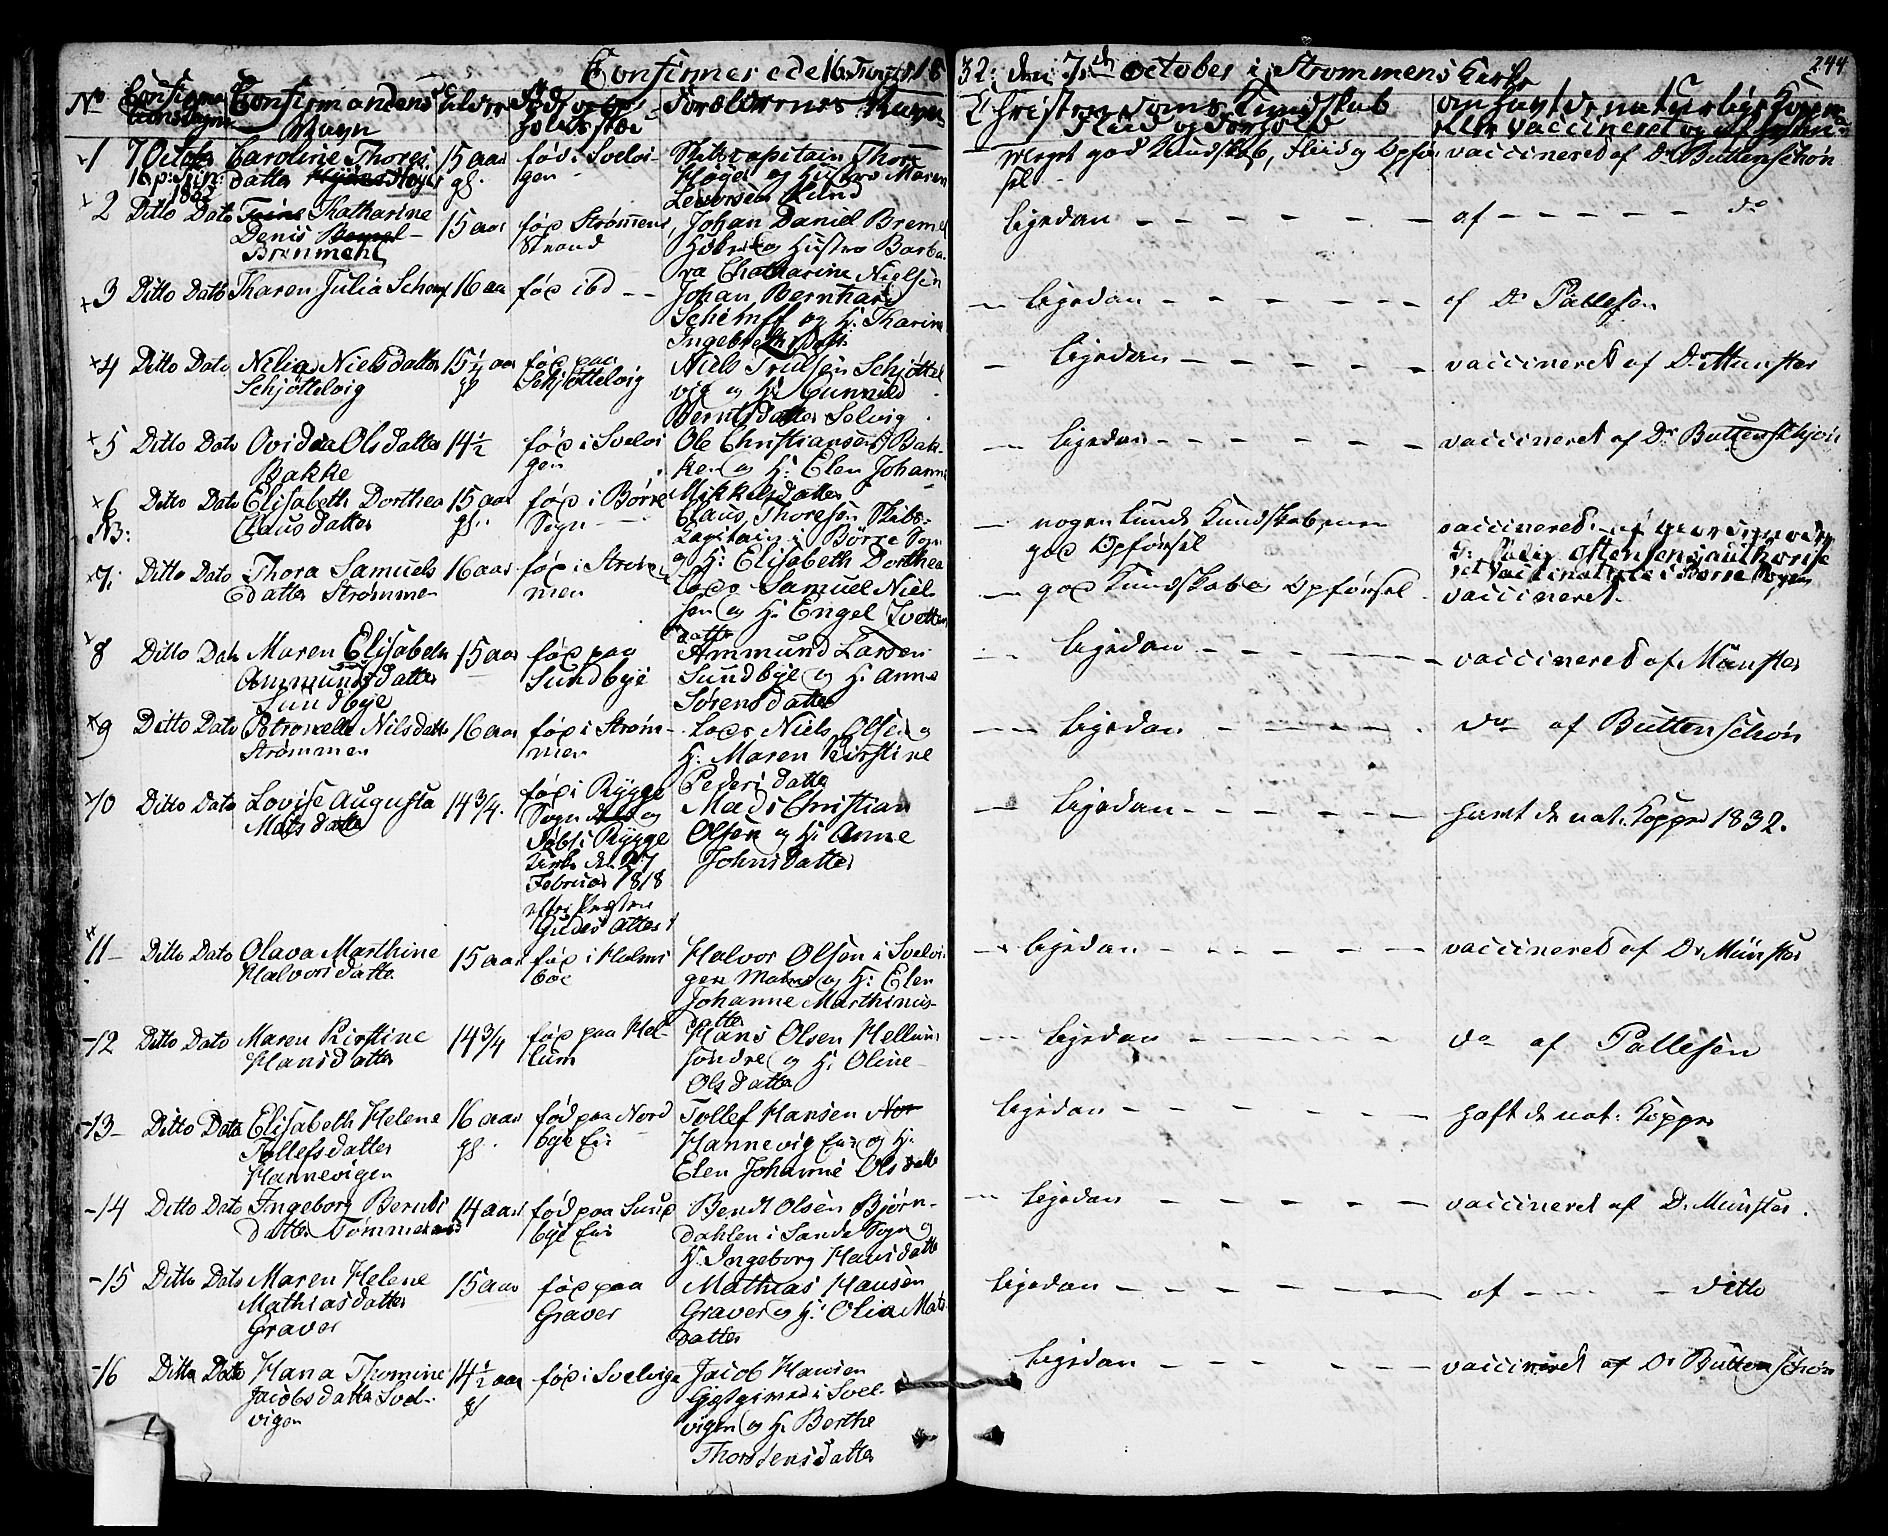 Confirmerede 16 S. Trinit: 1832: den 7de October i Strømmens Kirke
244
No Confirmationsdagen Confirmandens Navn Alder Fødsels Forældrernes Navne Christendoms Kundskab Flid og Forhold om havt de naturlige Kopper eller vaccineret og af hvem
1 7 Octob 16 p: Trin: 1832 Caroline Thoresdatter Høyer 15 aar gl. fød i Svelvigen Skibscapitain Thore Høyer og Hustro Maren Leversen Lund meget god Kundskab, Fliid og Opførsel vaccineret af Dr Buttenschøn
2 Ditto Dato Katharine Denis Bremmehl 15 aar fød Strømmens Strand Johan Daniel Bremel og Hustro Barbara Chatharine Nielsen ligedan af do
3 Ditto Dato Karen Julia Schemf 16 aar fød ibd Johan Bernhard Schemff og H: Karine Ingebretsdatt: ligedan af Dr Pallesen
4 Ditto Dato Nilia Nielsdatter Schjøttelvig 15 1/4 aar gl fød paa Schjøttelvig Niels Trulsen Schjøttelvig og H: Gunnild Berntsdatter Selvig ligedan vaccineret af Dr Munster
5 Ditto Dato Ovidia Olsdatter Bakke 14 1/2 fød i Svelvigen Ole Christiansen Bakken og H: Elen Johanne Mikkelsdatter ligedan vaccineret af Dr Buttenskjøn
6 NB: Ditto Dato Elisabeth Dorthea Clausdatter 15 aar gl. fød i Børre Sogn Claus Thoresen Skibscapitain i Børre Sogn og H: Elisabeth Dorthea nogenlunde Kundskab, men god Opførsel vaccineret af
7 Ditto Dato Thora Samuelsdatter Strømmen 16 aar fød i Strømmen Lods Samuel Nielsen og H: Engel Ivertsdatter god Kundskab og Opførsel vaccineret.
8 Ditto Dato Maren Elisabeth Ammundsdatter Sundbye 15 aar fød paa Sundbye Ammund Larsen Sundbye og H: Anne Sørensdatter ligedan vaccineret af Münster
9 Ditto Dato Petronelle Nilsdatter Strømmen 16 aar fød i Strømmen Lods Niels Olsen og H: Maren Kirstine Pedersdatter ligedan do af Buttenschøn
10 Ditto Dato Lovise Augusta Matsdatter 14 3/4. fød i Rygge Sogn og døbt i Rygge Kirke den 27 Februar 1818 efter Præsten Gudes Attest Mads Christian Olsen og H: Anne Johnsdatter ligedan havt de nat: Kopper 1832.
11 Ditto Dato Olava Marthine Halvorsdatter 15 aar fød i Holmsboe Halvor Olsen i Svelvigen Matros og H: Elen Johanne Marthinusdatter ligedan vaccineret af Dr Münster
12 Ditto Dato Maren Kirstine Hansdatter 14 3/4 fød paa Hellum Hans Olsen Hellum søndre og H: Oline Olsdatter ligedan do af Pallesen
13 Ditto Dato Elisabeth Helene Tollefsdatter Hannevigen 16 aar gl. fød paa Nordbye Eie Tollef Hansen Hannevig Eie og H: Elen Johanne Olsdatt ligedan haft de nat: Kopper
14 Ditto Dato Ingeborg Berntsdatter Tømmeraas 14 aar fød paa Sundbye Eie Bendt Olsen Bjørndahlen i Sande Sogn og H. Ingeborg Hansdatte ligedan vaccineret af Dr Münster.
15 Ditto Dato Maren Helene Mathiasdatter Graver 15 aar fød paa Graver Mathias Hansen Graver og H: Olia Matsdatter ligedan af ditto
16 Ditto Dato Hana Thomine Jacobsdatter Svelvigen 14 1/2 aar gl fød i Svelvigen Jacob Hansen Gjestgiver i Svelvigen og H. Berthe Thorstensdatter ligedan vaccineret af Dr Buttenschøn